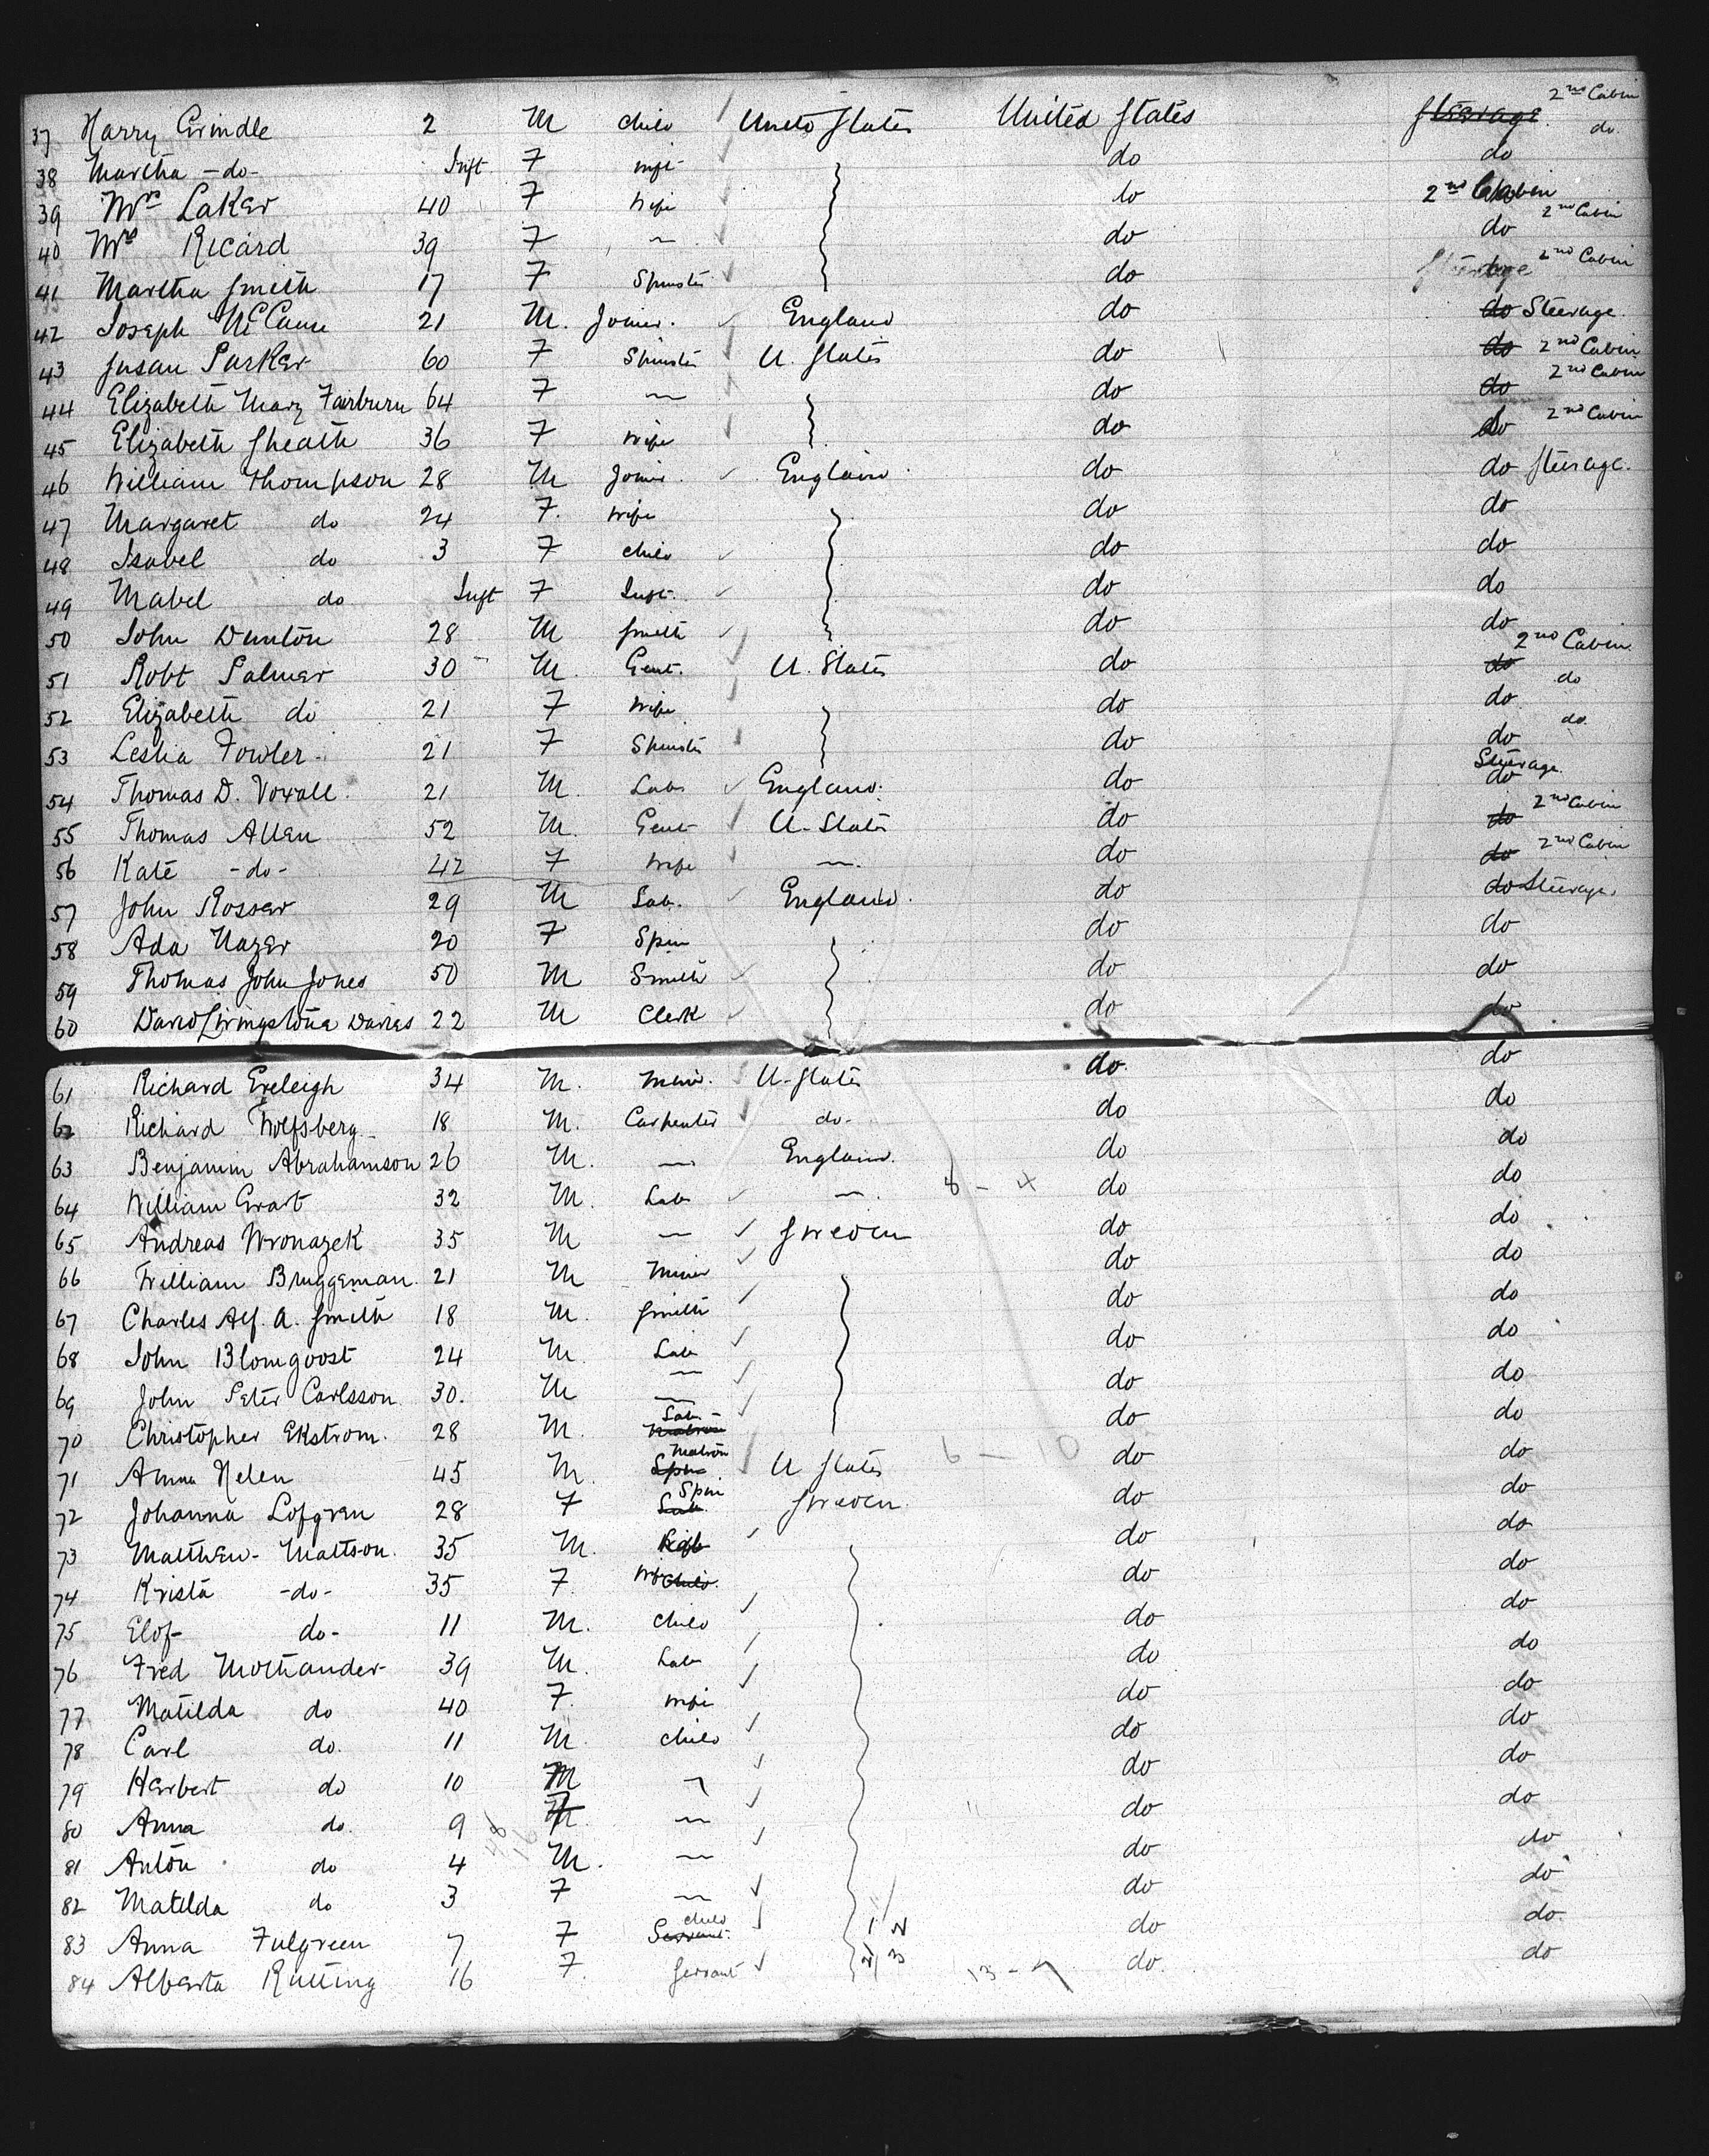 37 Harry Grindle 2 M child United States United States Steerage 2nd Cabin
38 Martha -do- Inft F inft do do do.
39 Mrs Laker 40 F Wife do 2nd Cabin
40 Mrs Ricard 39 F do do 2nd Cabin
41 Martha Smith 17 F Spinster do Steerage 2nd Cabin
42 Joseph McCann 21 M. Joiner. England do do Steerage.
43 Susan Parker 60 F Spinster U. States do do 2nd Cabin
44 Elizabeth Mary Fairburn 64 F do do 2nd Cabin
45 Elizabeth Sheath 36 F Wife do do 2nd Cabin
46 William Thompson 28 M Joiner. England do do Steerage.
47 Margaret do 24 F. Wife do do
48 Isabel do 3 F child do do
49 Mabel do Inft F Inft. do do
50 John Dunton 28 M Smith do do
51 Robt Palmer 30 M. Gent. U. States do do 2nd Cabin
52 Elizabeth do 21 F Wife do do do
53 Fowler 21 F Spinster do do do.
54 Thomas D. Voxall 21 M. Lab. England. do do Steerage
55 Thomas Allen 52 M. Gent U-States do do 2nd Cabin
56 Kate -do- 42 F Wife do do 2nd Cabin
57 John Rosser 29 M Lab. England. do do Steerage.
58 Ada 20 F Spin do do
59 Thomas John Jones 50 M Smith do do
60 David Livingstone Davies 22 M Clerk do do
61 Richard 34 M. Miner. U-States do. do
62 Richard Wolfsberg 18 M. Carpenter do- do do
63 Benjamin Abrahamson 26 M. England. do do
64 William 32 M. Lab 8 - 4 do do
65 Andreas 35 M Sweden do do
66 William Bruggeman. 21 M Miner do do
67 Charles Alf. A. Smith 18 M. Smith do do
68 John Blomgvost 24 M. Lab do do
69 John Peter Carlsson 30. M do do
70 Christopher Ekstrom. 28 M. Lab Matron do do
71 Anna Helen 45 M. Spin Matron U States 6 - 10 do do
72 Johanna Lofgren 28 F Lab. Spin Sweden. do do
73 Matthew- Mattson. 35 M. do do
74 Krista -do- 35 F. Wife Child. do do
75 Elof- do- 11 M. Child do do
76 Fred Mothander 39 M. Lab do do
77 Matilda do 40 F. Wife do do
78 Carl do. 11 M. child do do
79 Herbert do 10 M do do
80 Anna do. 9 F do do
81 Anton do 4 M. do do
82 Matilda do 3 F do do
83 Anna Fulgreen 7 F Servant. child do do.
84 Alberta Rutting 16 F. Servant 13 - 7 do. do